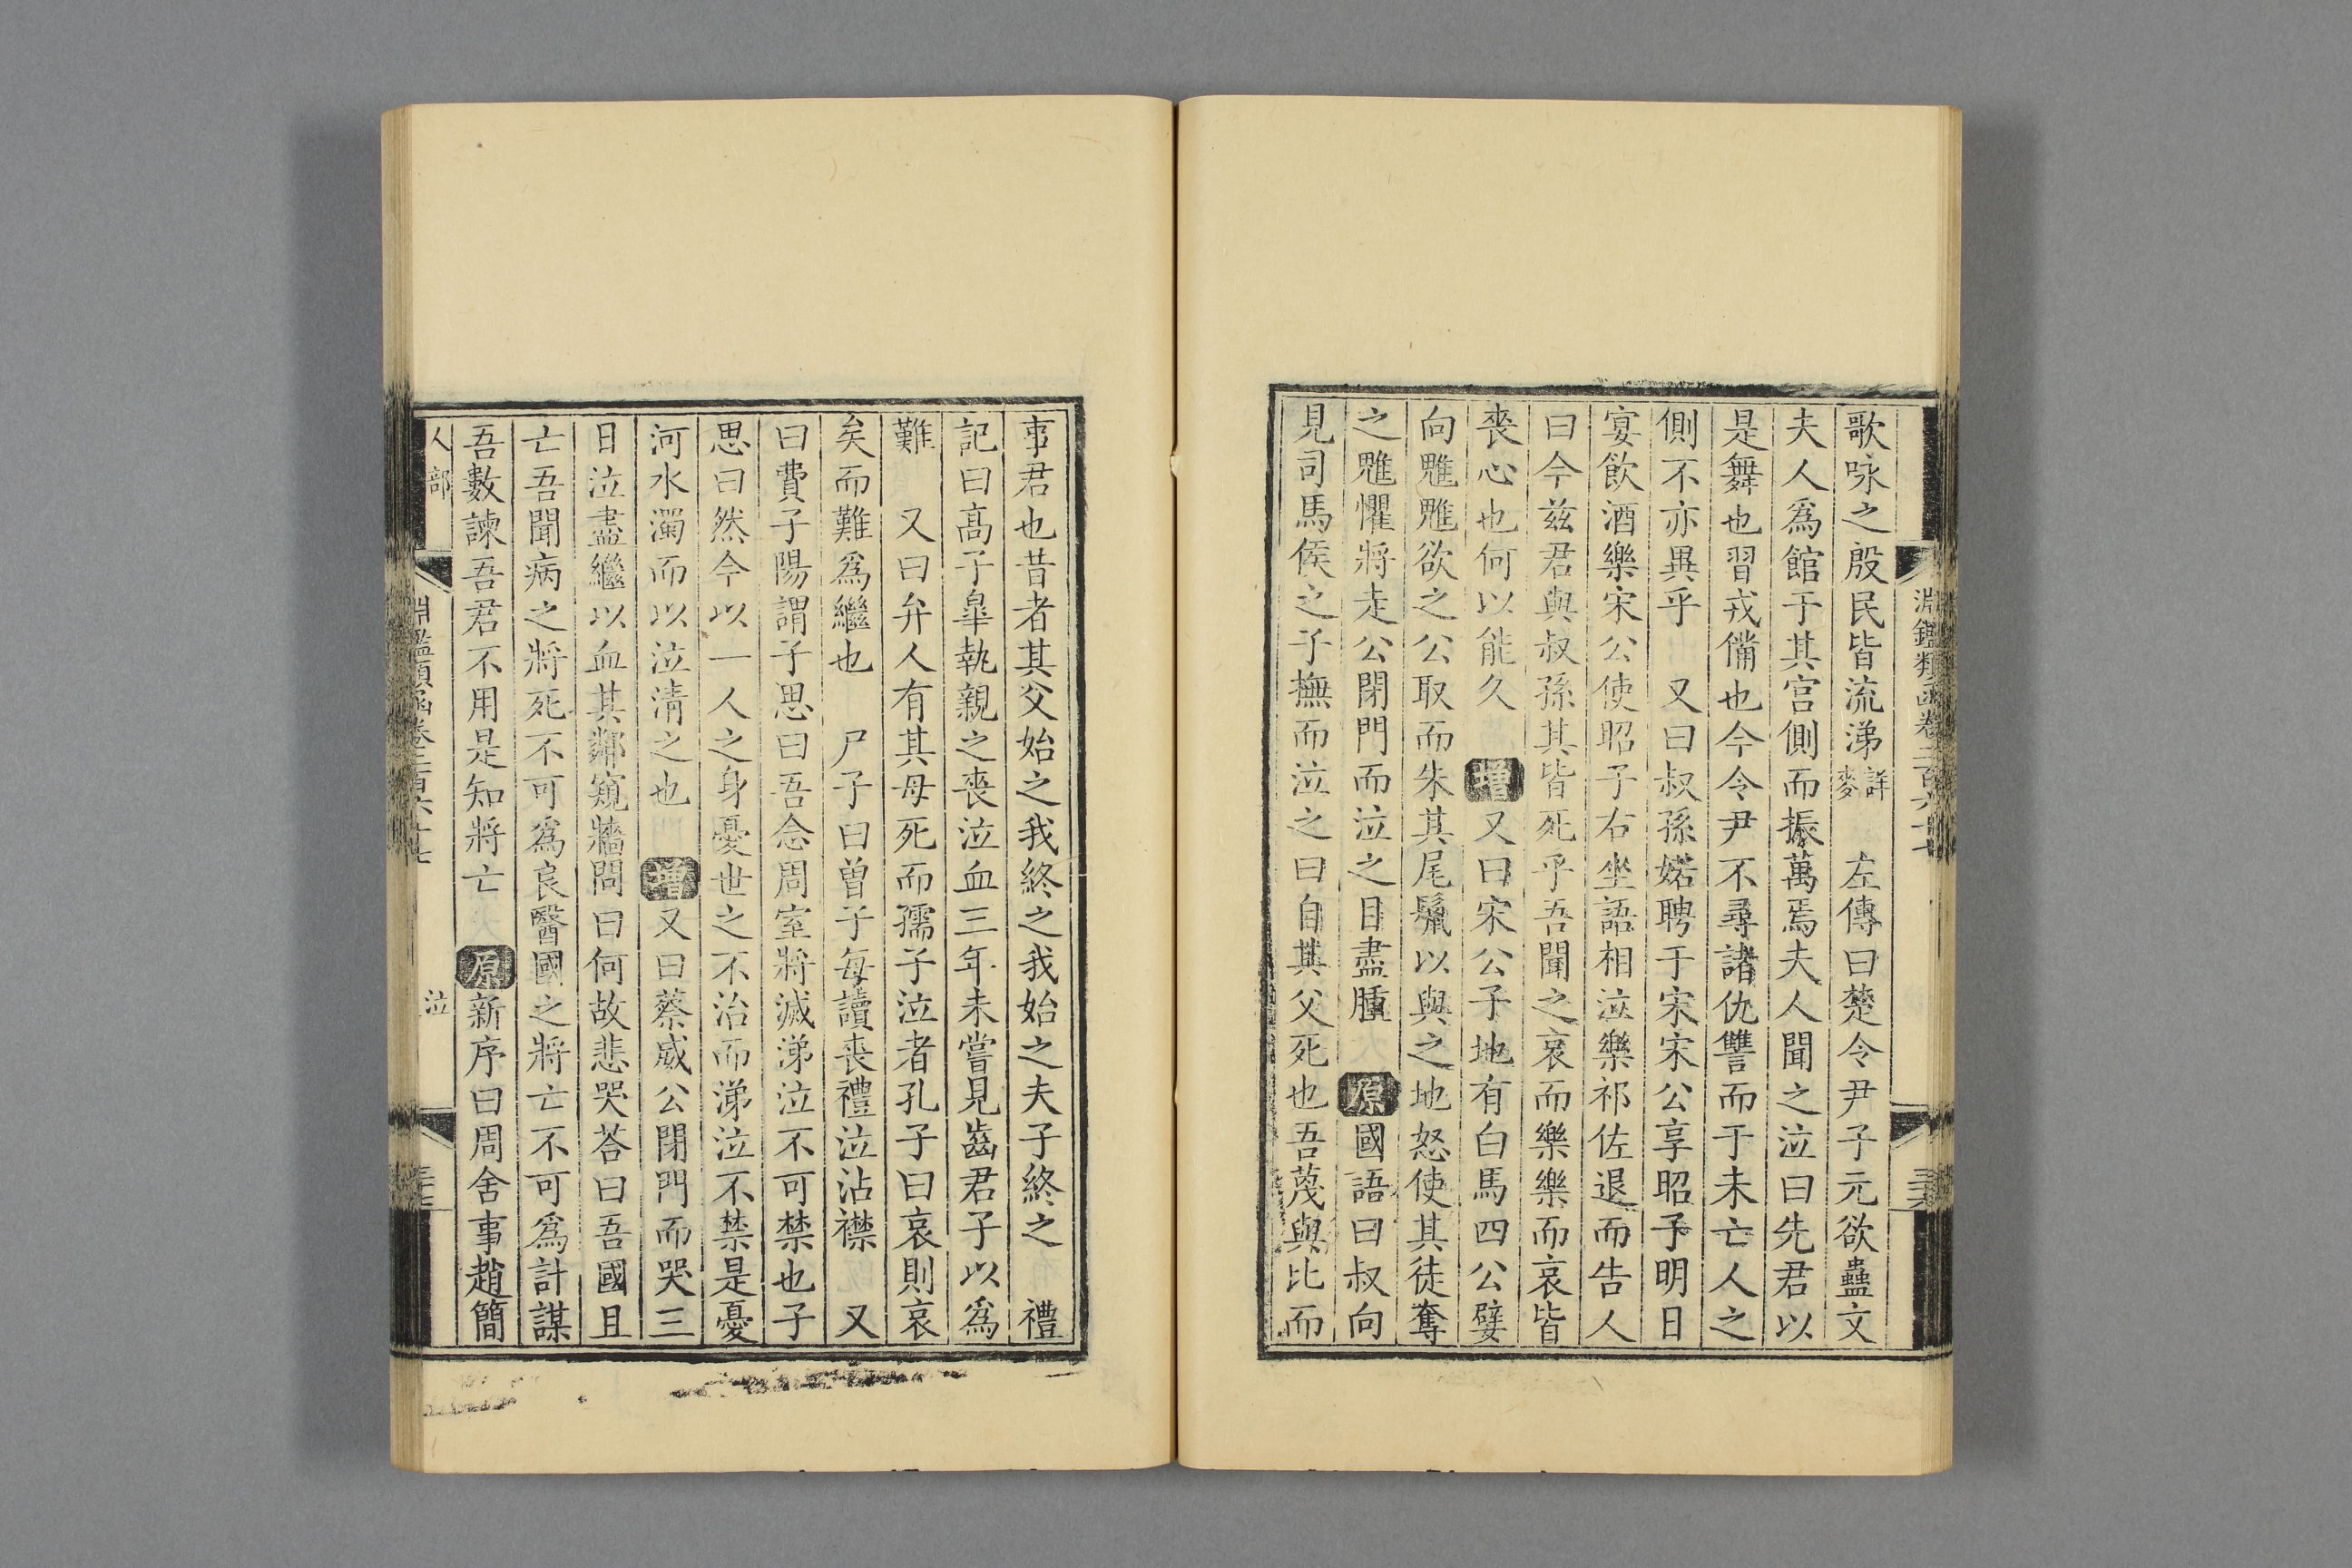 歌咏之殷民皆流涕詳麥　左傳曰楚令尹子元欲蠱文
夫人爲館于其宫側而振萬焉夫人聞之泣曰先君以
是舞也習戎備也今令尹不尋諸仇讐而于未亡人之
側不亦異乎　又曰叔孫婼聘于宋宋公享昭子明日
宴飲酒樂宋公使昭子右坐語相泣樂祁佐退而告人
曰今兹君與叔孫其皆死乎吾聞之哀而樂樂而哀皆
喪心也何以能久　增又曰宋公子地有白馬四公嬖
向魋魋欲之公取而朱其尾鬛以與之地怒使其徒奪
之魋懼將走公閉門而泣之目盡腫　原國語曰叔向
見司馬侯之子撫而泣之曰自其父死也吾蔑與比而
淵鑑類函卷二百六十七
事君也昔者其父始之我終之我始之夫子終之　禮
記曰高子皋執親之喪泣血三年未嘗見齒君子以爲
難　又曰弁人有其母死而孺子泣者孔子曰哀則哀
矣而難爲繼也　尸子曰曾子每讀喪禮泣沾襟　又
曰費子陽謂子思曰吾念周室將滅涕泣不可禁也子
思曰然今以一人之身憂世之不治而涕泣不禁是憂
河水濁而以泣清之也　增又曰蔡威公閉門而哭三
日泣盡繼以血其鄰窺牆問曰何故悲哭荅曰吾國且
亡吾聞病之將死不可爲良醫國之將亡不可爲計謀
吾數諫吾君不用是知將亡　原新序曰周舍事趙簡
人部　淵鑑類函卷二百六十七　泣